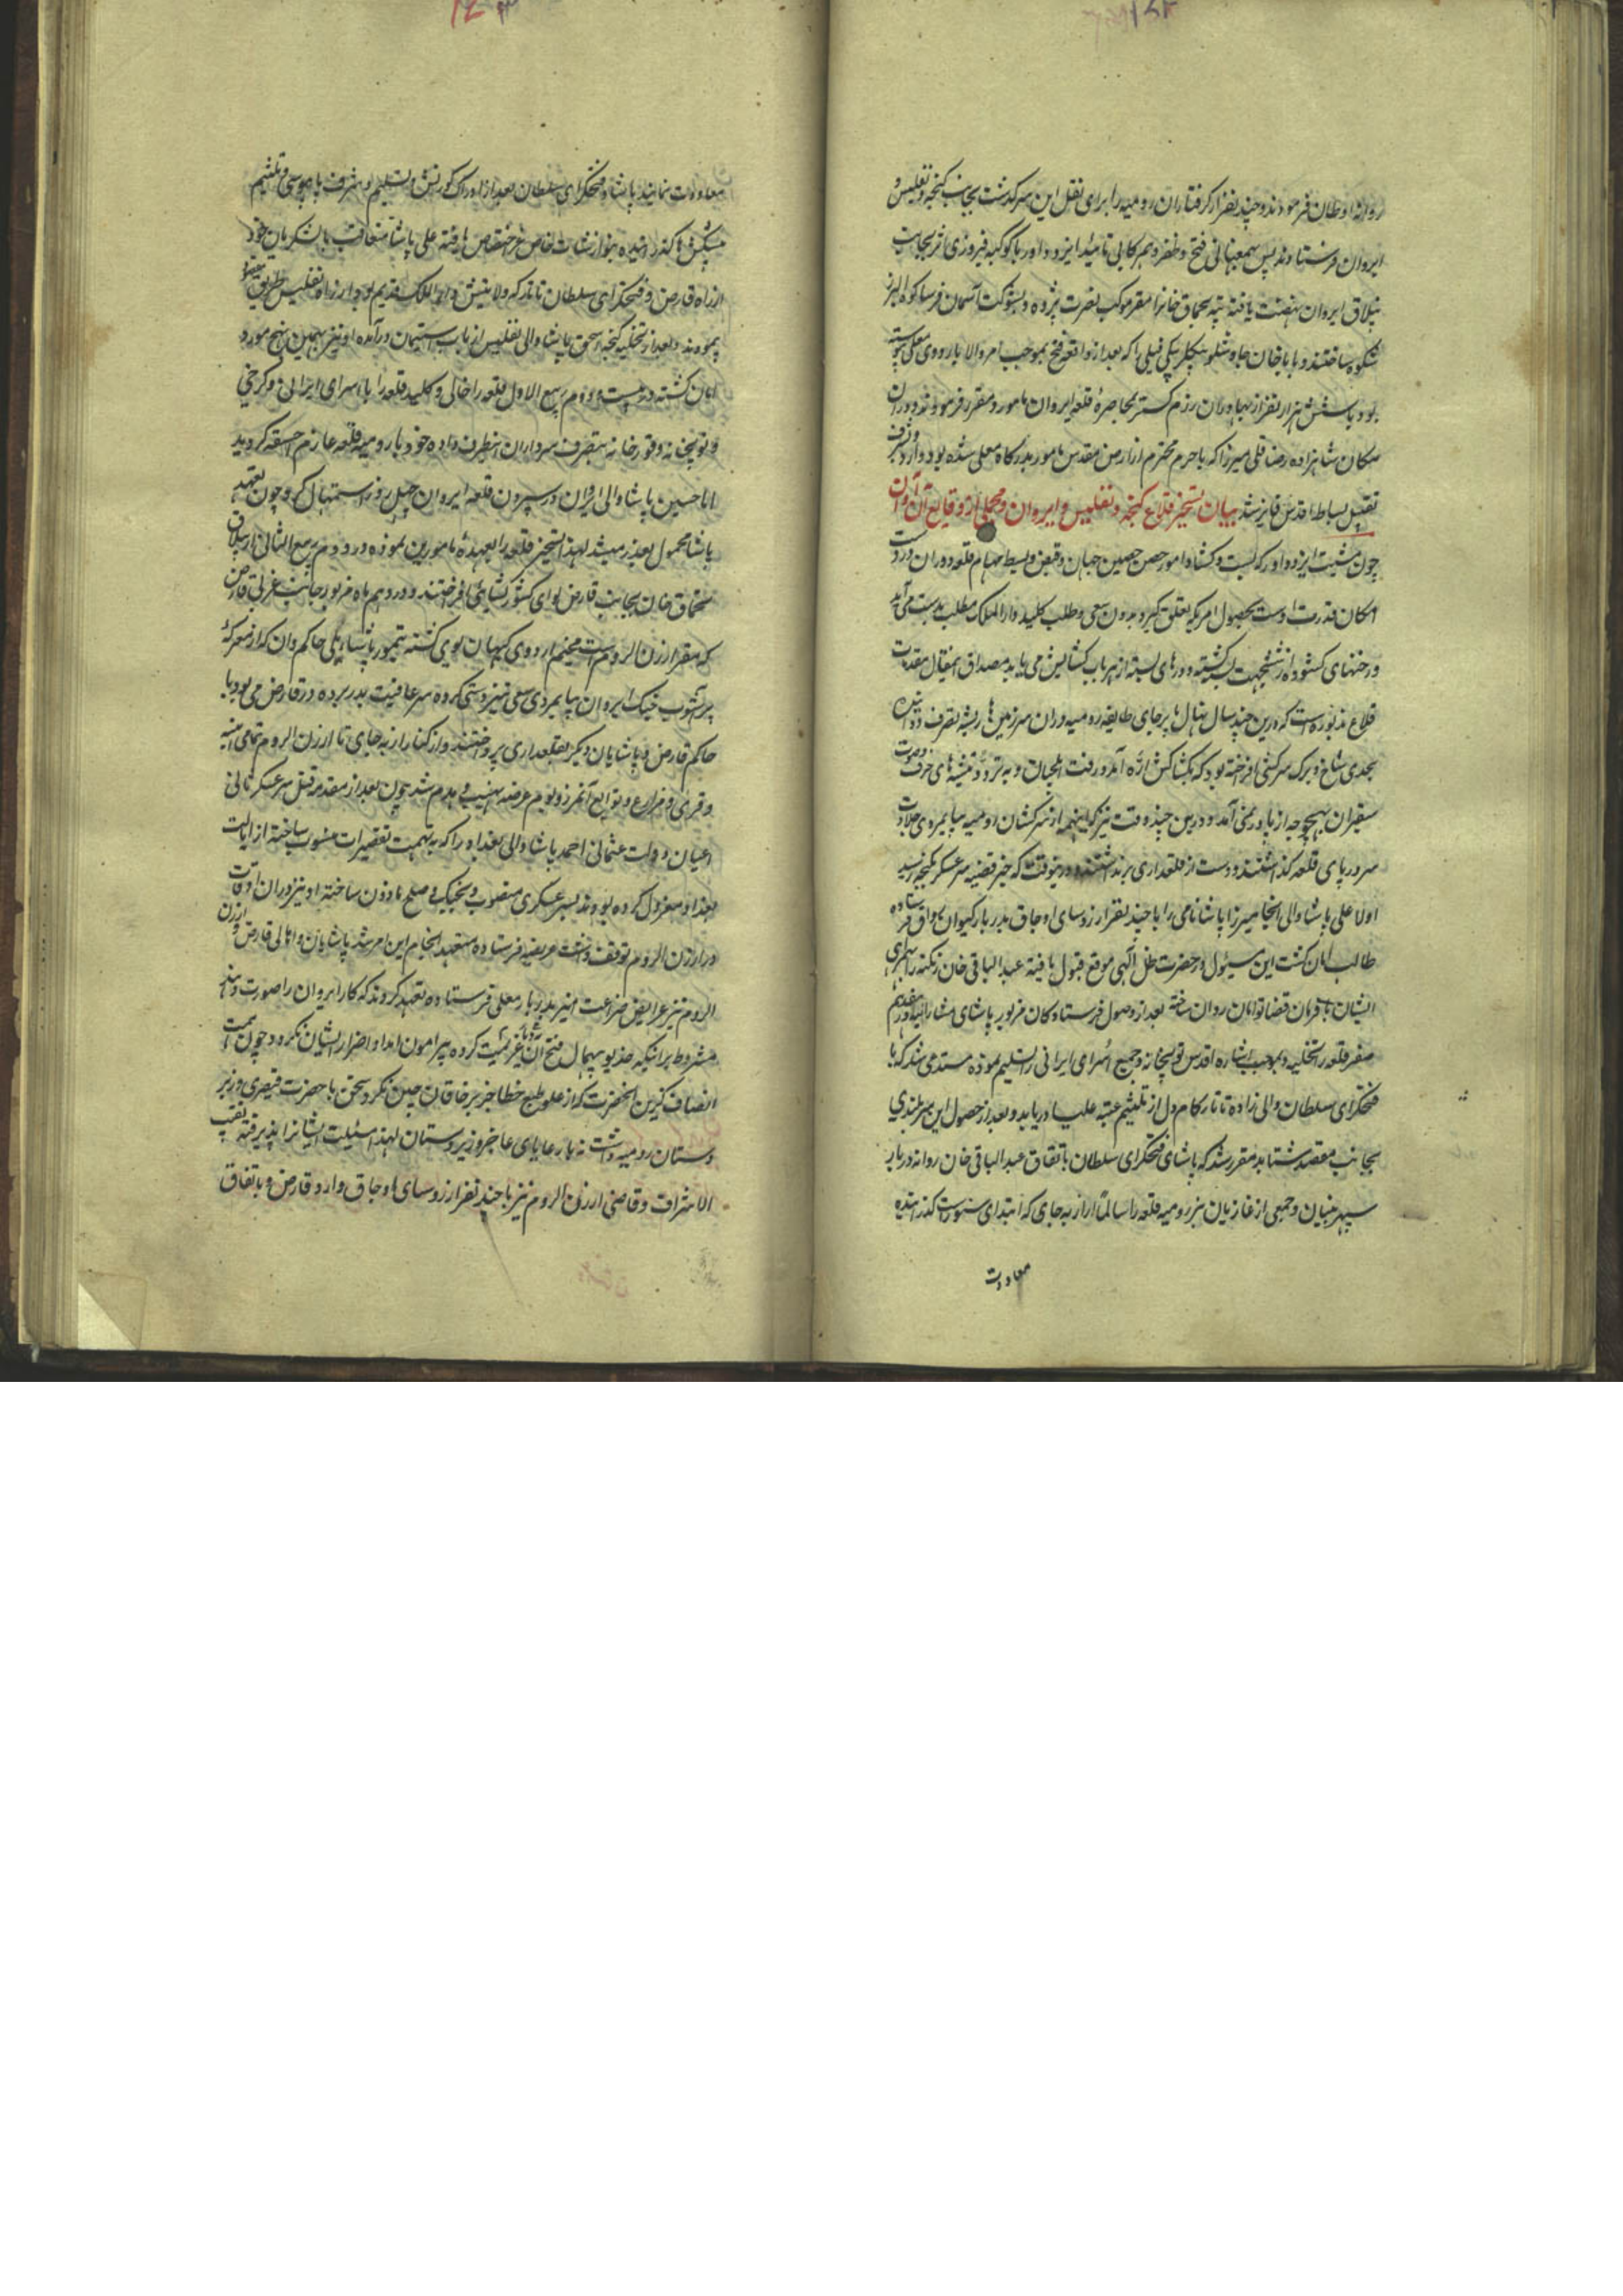 روانه اوطان فرمودند و چند نفر از گرفتاران رومیه را برای نقل این سرگذشت بجانب گنجه و تفلیس و
ایروان فرستادند پس بهمعنانی فتح و ظفر و همرکابی تائید ایزد داور با کوکبه فیروزی اثر بجانب
ییلاق ایروان نهضت یافته تپه محماق خانرا مقر موکب نصرت پژوه و بشوکت آسمان فرسا کوه البرز
شکوه ساختند و باباخان چاوشلو بیگلربیگی فیلی را که بعد از واقعه فتح بموجب امر والا باردوی معلی پیوسته
بود با شش هزار نفر از بهادران رزم گستر بمحاصره قلعه ایروان مامور و مقرر فرمودند و در آن
مکان شاهزاده رضا قلی میرزا که با حرم محترم از ارض مقدس مامور بدرگاه معلی شده بود وارد و شرف
تقبیل بساط اقدس فایز شد بیان تسخیر قلاع گنجه و تفلیس و ایروان و مجملی از وقایع آن اوان
چون مشیت ایزد داور که بست و گشاد امور حصن حصین جهان و قبض و بسط مهام قلعه دوران در دست
امکان قدرت اوست بحصول امریکه تعلق گیرد بدون سعی و طلب کلید دار الملک مطلب بدست می آید
و رخنهای گشوده از ششجهت بسته گشته و درهای بسته از هر باب گشایش می یابد مصداق اینمقال مقدمات
قلاع مذبوره است که درین چند سال نهال پا بر جای طایفه رومیه در ان سرزمین ها ریشه تصرف دوانیده
بحدی شاخ و برگ سرکشی افراخته بود که بکشاکش اژه آمد و رفت ایلچیان و به تردد تیشه های حرف و صوت
سفیران بهیچوجه از پا در نمی آمد و درین چند وقت نیز که اینهمه از سرکشان رومیه بپایمردی جلادت
سر در پای قلعه گذاشتند و دست از قلعداری برنداشتند درینوقت که خبر قضیه سرعسکر بگنجه رسید
اولا علی پاشا والی آنجا میرزا پاشا نامی را با چند نفر از روسای اوجاق بدربار کیوان رواق فرستاده
طالب امان گشت این مسئول در حضرت ظل الهی موقع قبول یافته عبدالباقی خان زنگنه را بهمراهی
ایشان با فرمان قضا توامان روان ساخته بعد از وصول فرستادگان مزبور پاشای مشارالیه در هفدهم
صفر قلعه را تخلیه و بموجب اشاره اقدس توپخانه و جمیع اسرای ایرانی را تسلیم نموده مستدعی شد که با
فتحگرای سلطان والی زاده تاتار کام دل از تلثیم عتبه علیا دریابد و بعد از حصول این سربلندی
بجانب مقصد شتابد مقرر شد که پاشای فتحگرای سلطان باتفاق عبدالباقی خان روانه دربار
سپهر بنیان و جمعی از غازیان نیز رومیه قلعه را سالما از ارپه جای که ابتدای سنور است گذرانیده
معاودت
معاودت نمایند پاشا و فتحگرای سلطان بعد از ادراک کورنش و تسلیم و شرف پابوسی و تلثیم
پیشکش ها گذرانیده بنوازشات خاص عز اختصاص یافته علی پاشا متعاقب با لشکریان خود
از راه قارص و فتحگرای سلطان تاتار که ولایتش دار الملک قدیم بود از راه تفلیس طریق مقصود
پیمودند و بعد از تخلیه گنجه اسحق پاشا والی تفلیس از باب استیمان درآمده او نیز بهمین نهج مورد
امان گشته در بیست و دوم ربیع الاول قلعه را خالی و کلید قلعه را با اسرای ایرانی و گرجی
و توپخانه و قورخانه بتصرف سرداران اینطرف داده خود با رومیه قلعه عازم اخسقه گردید
اما حسین پاشا والی ایروان در سپردن قلعه ایروان چهل روز استمهال کرد چون تعهد
پاشا محمول بعذر میشد لهذا تسخیر قلعه را بعهده مامورین نموده در دوم ربیع الثانی از ییلاق
محماق خان بجانب قارص لوای کشور گشایی افراختند و در دهم ماه مزبور جانب غربی قارص
که مقر ارزن الروم است مخیم اردوی کیهان پوی گشته تیمور پاشا ملی حاکم وان که از معرکه
پر آشوب جنگ ایروان بپایمردی سعی تیز دستی کرده سر عافیت بدر برده در قارص می بود با
حاکم قارص و پاشایان دیگر بقلعداری پرداختند و از کنار ارپه جای تا ارزن الروم تمامی ابنیه
و قری و مزارع و توابع آنمرز و بوم عرضه نهیب و هدم شد چون بعد از مقدمه قتل سرعسکر ثانی
اعیان دولت عثمانی احمد پاشا والی بغداد را که به تهمت تقصیرات منسوب ساخته از ایالت
بغداد معزول کرده بودند بسرعسکری منصوب و بجنگ و صلح ماذون ساخته او نیز در ان اوقات
در ارزن الروم توقف داشت عریضه فرستاده متعهد انجام این امر شد پاشایان و اهالی قارص و ارزن
الروم نیز عرایض ضراعت آمیز بدربار معلی فرستاده تعهد کردند که کار ایروان را صورت دهند
مشروط بر آنکه خدیو بیهمال فتح آن بلاد عزیمت کرده پیرامون ایذا و اضرار ایشان نگردد چون همت
انصاف گزین آنحضرت که از علو طبع خطاب جز بر خاقان چین نکرد و سخن با حضرت قیصری و زبر
دستان رومیه داشت نه با رعایای عاجز و زیردستان لهذا مسئلت ایشانرا پذیرفته نقیب
الاشراف و قاضی ارزن الروم نیز با چند نفر از روسای اوجاق وارد قارص و باتفاق